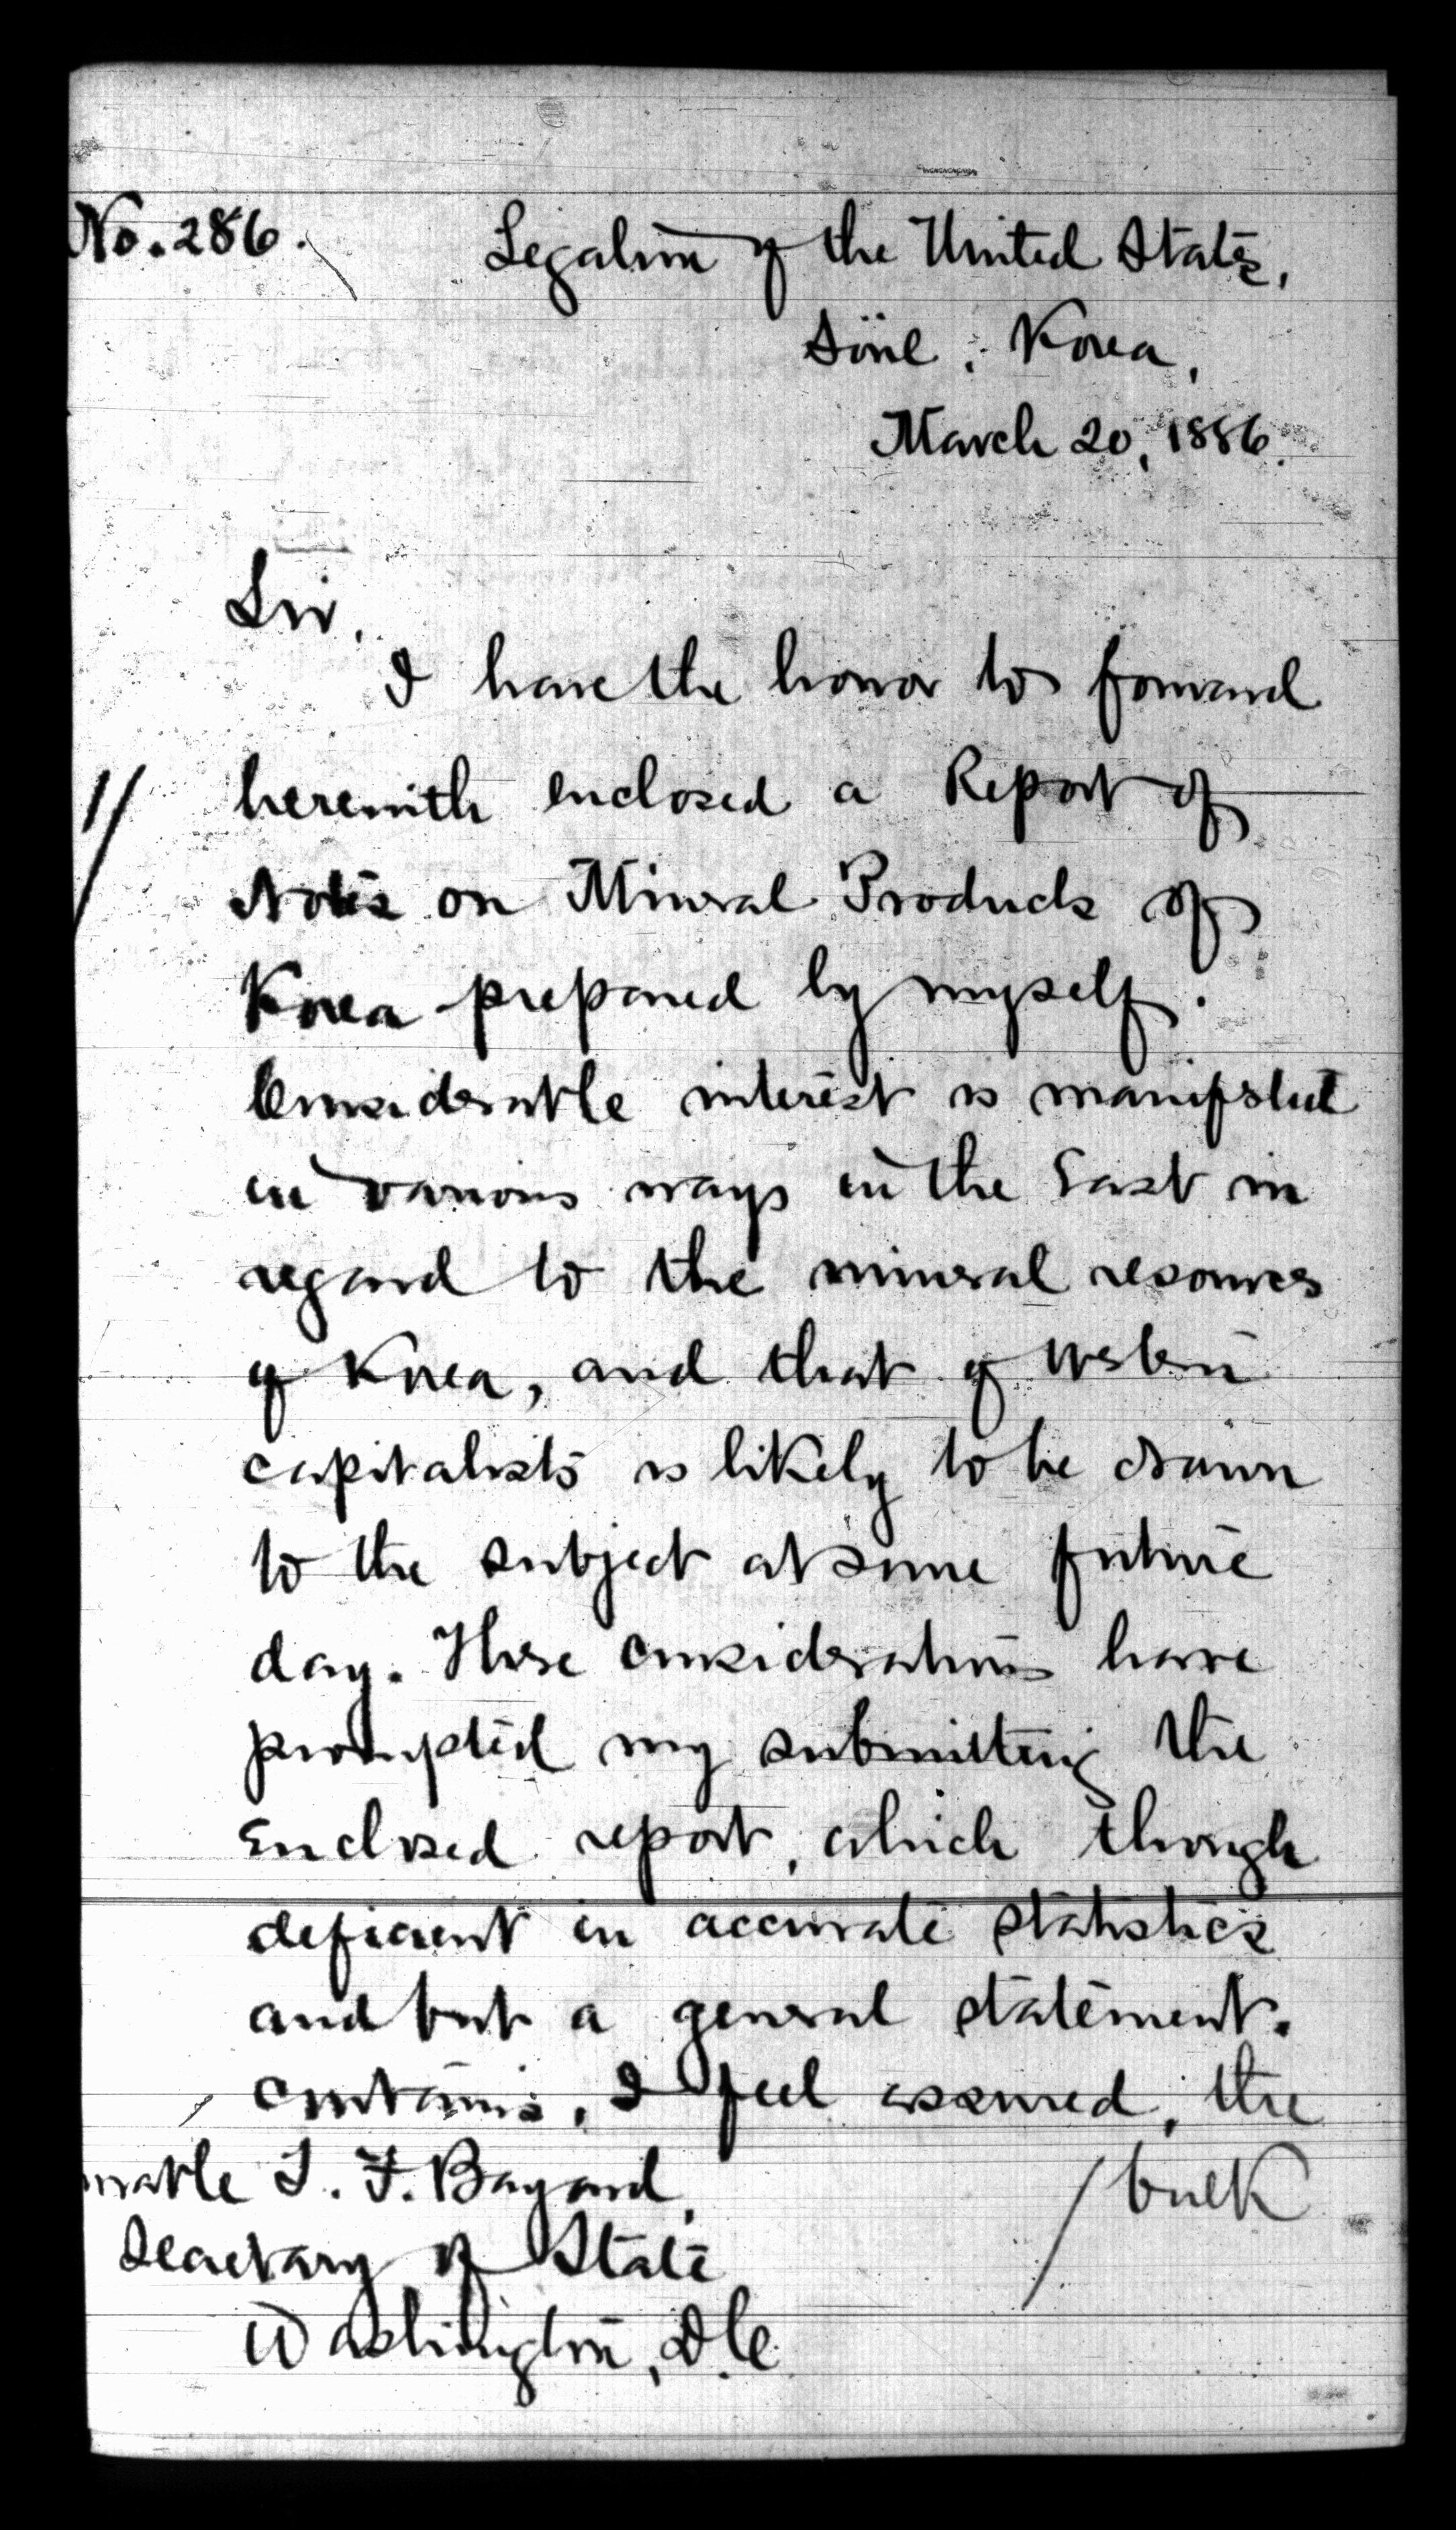 No. 286.
Legation of the United States,
Söul, Korea,
March 20, 1886.
Sir,
I have the honor to forward
herewith enclosed a Report of
Notes on Mineral Products of
Korea prepared by myself.
Considerable interest is manifested
in various ways in the East in
regard to the mineral resources
of Korea, and that of western
capitalists is likely to be drawn
to the subject at some future
day. These considerations have
prompted my submitting the
enclosed report, which though
deficient in accurate statistics
and but a general statement,
contains, I feel assured, the
T. F. Bayard,
/ bulk
Secretary of State
Washington, D.C.